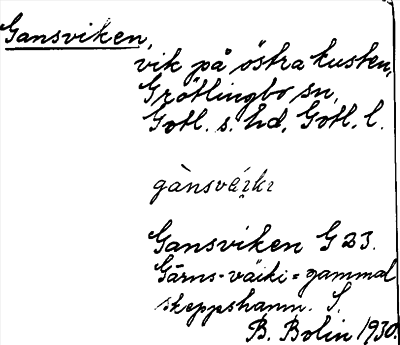 Gansviken,
vik på östra kusten,
Grötlingbo sn,
Gotl. s. hd, Gotl. l.
gànsvái̯kı
Gansviken G 23.
Gärns-väiki = gammal
skeppshamn. S.
B. Bolin 1930.